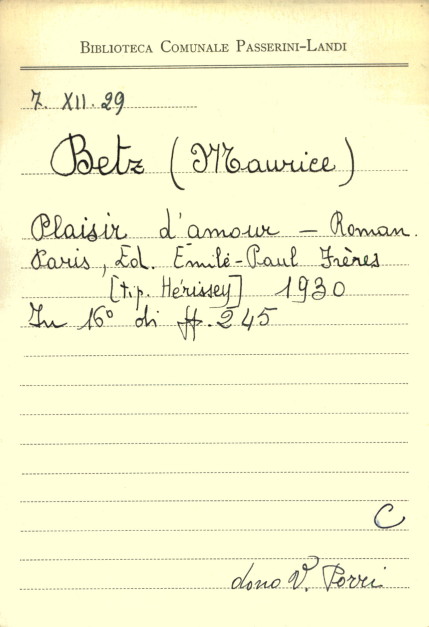 BIBLIOTECA COMUNALE PASSERINI-LANDI
7. XII. 29
Betz (Maurice)
Plaisir d'amour — Roman.
Paris, Ed. Emile-Paul Frères
[tip. Hérissey] 1930
In 16° di ff. 245
C
dono V. Porri